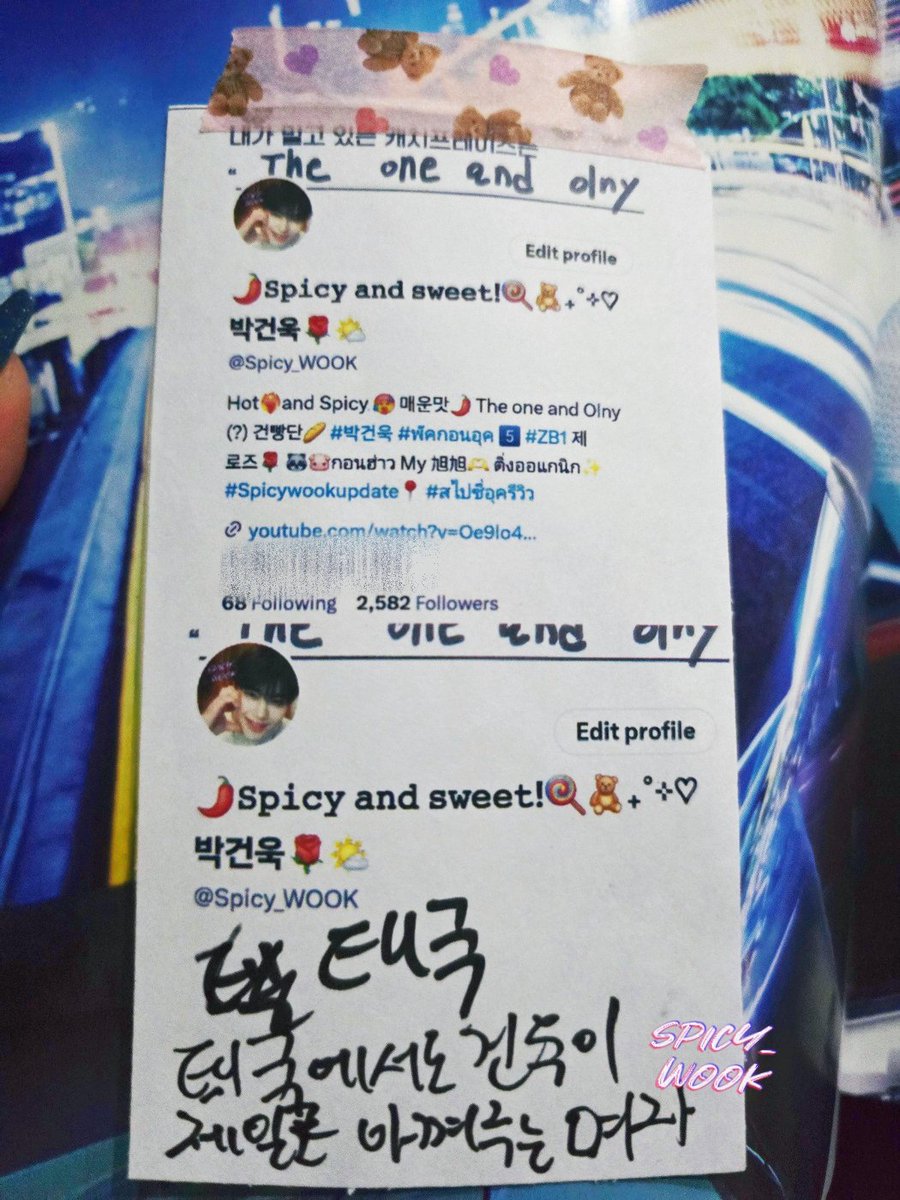 내가 밀고 있는 캐치프레이즈는
" The one and olny
Edit profile
🌶️Spicy and sweet!🍭🧸₊˚⊹♡
박건욱🌹🌤️
@Spicy_WOOK
Hot❤️‍🔥and Spicy 🥵 매운맛🌶️ The one and Olny
(?) 건빵단🥖 #박건욱 #พัคกอนอุค 5️⃣ #ZB1 제
로즈🌹 🐼🐷กอนฮ่าว My 旭旭🫶 ติ่งออแกนิก✨
#Spicywookupdate📍 #สไปซี่อุครีวิว
youtube.com/watch?v=Oe9lo4...
68 Following 2,582 Followers
" The one and olny
Edit profile
🌶️Spicy and sweet!🍭🧸₊˚⊹♡
박건욱🌹🌤️
@Spicy_WOOK
태국
태국에서도 건욱이
제일 아껴주는 여자
SPICY_
WOOK